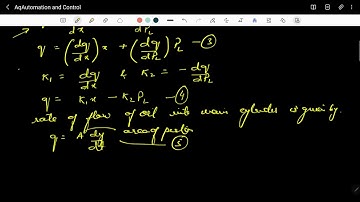 AqAutomation and Control
dx dPL
q = (dq/dx) x + (dq/dPL) PL — ③
K1 = dq/dx & K2 = - dq/dPL
q = K1x - K2PL — ④
rate of flow of oil into main cylinder is given by.
q = A dy/dt area of piston — ⑤